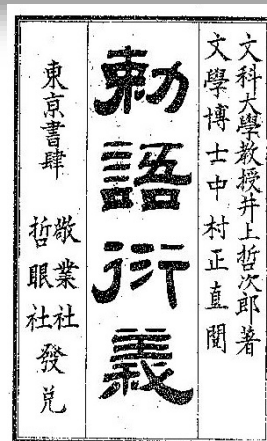 文科大學教授井上哲次郎著
文學博士中村正直閲
勅語衍義
東京書肆
敬業社
哲眼社
發兌